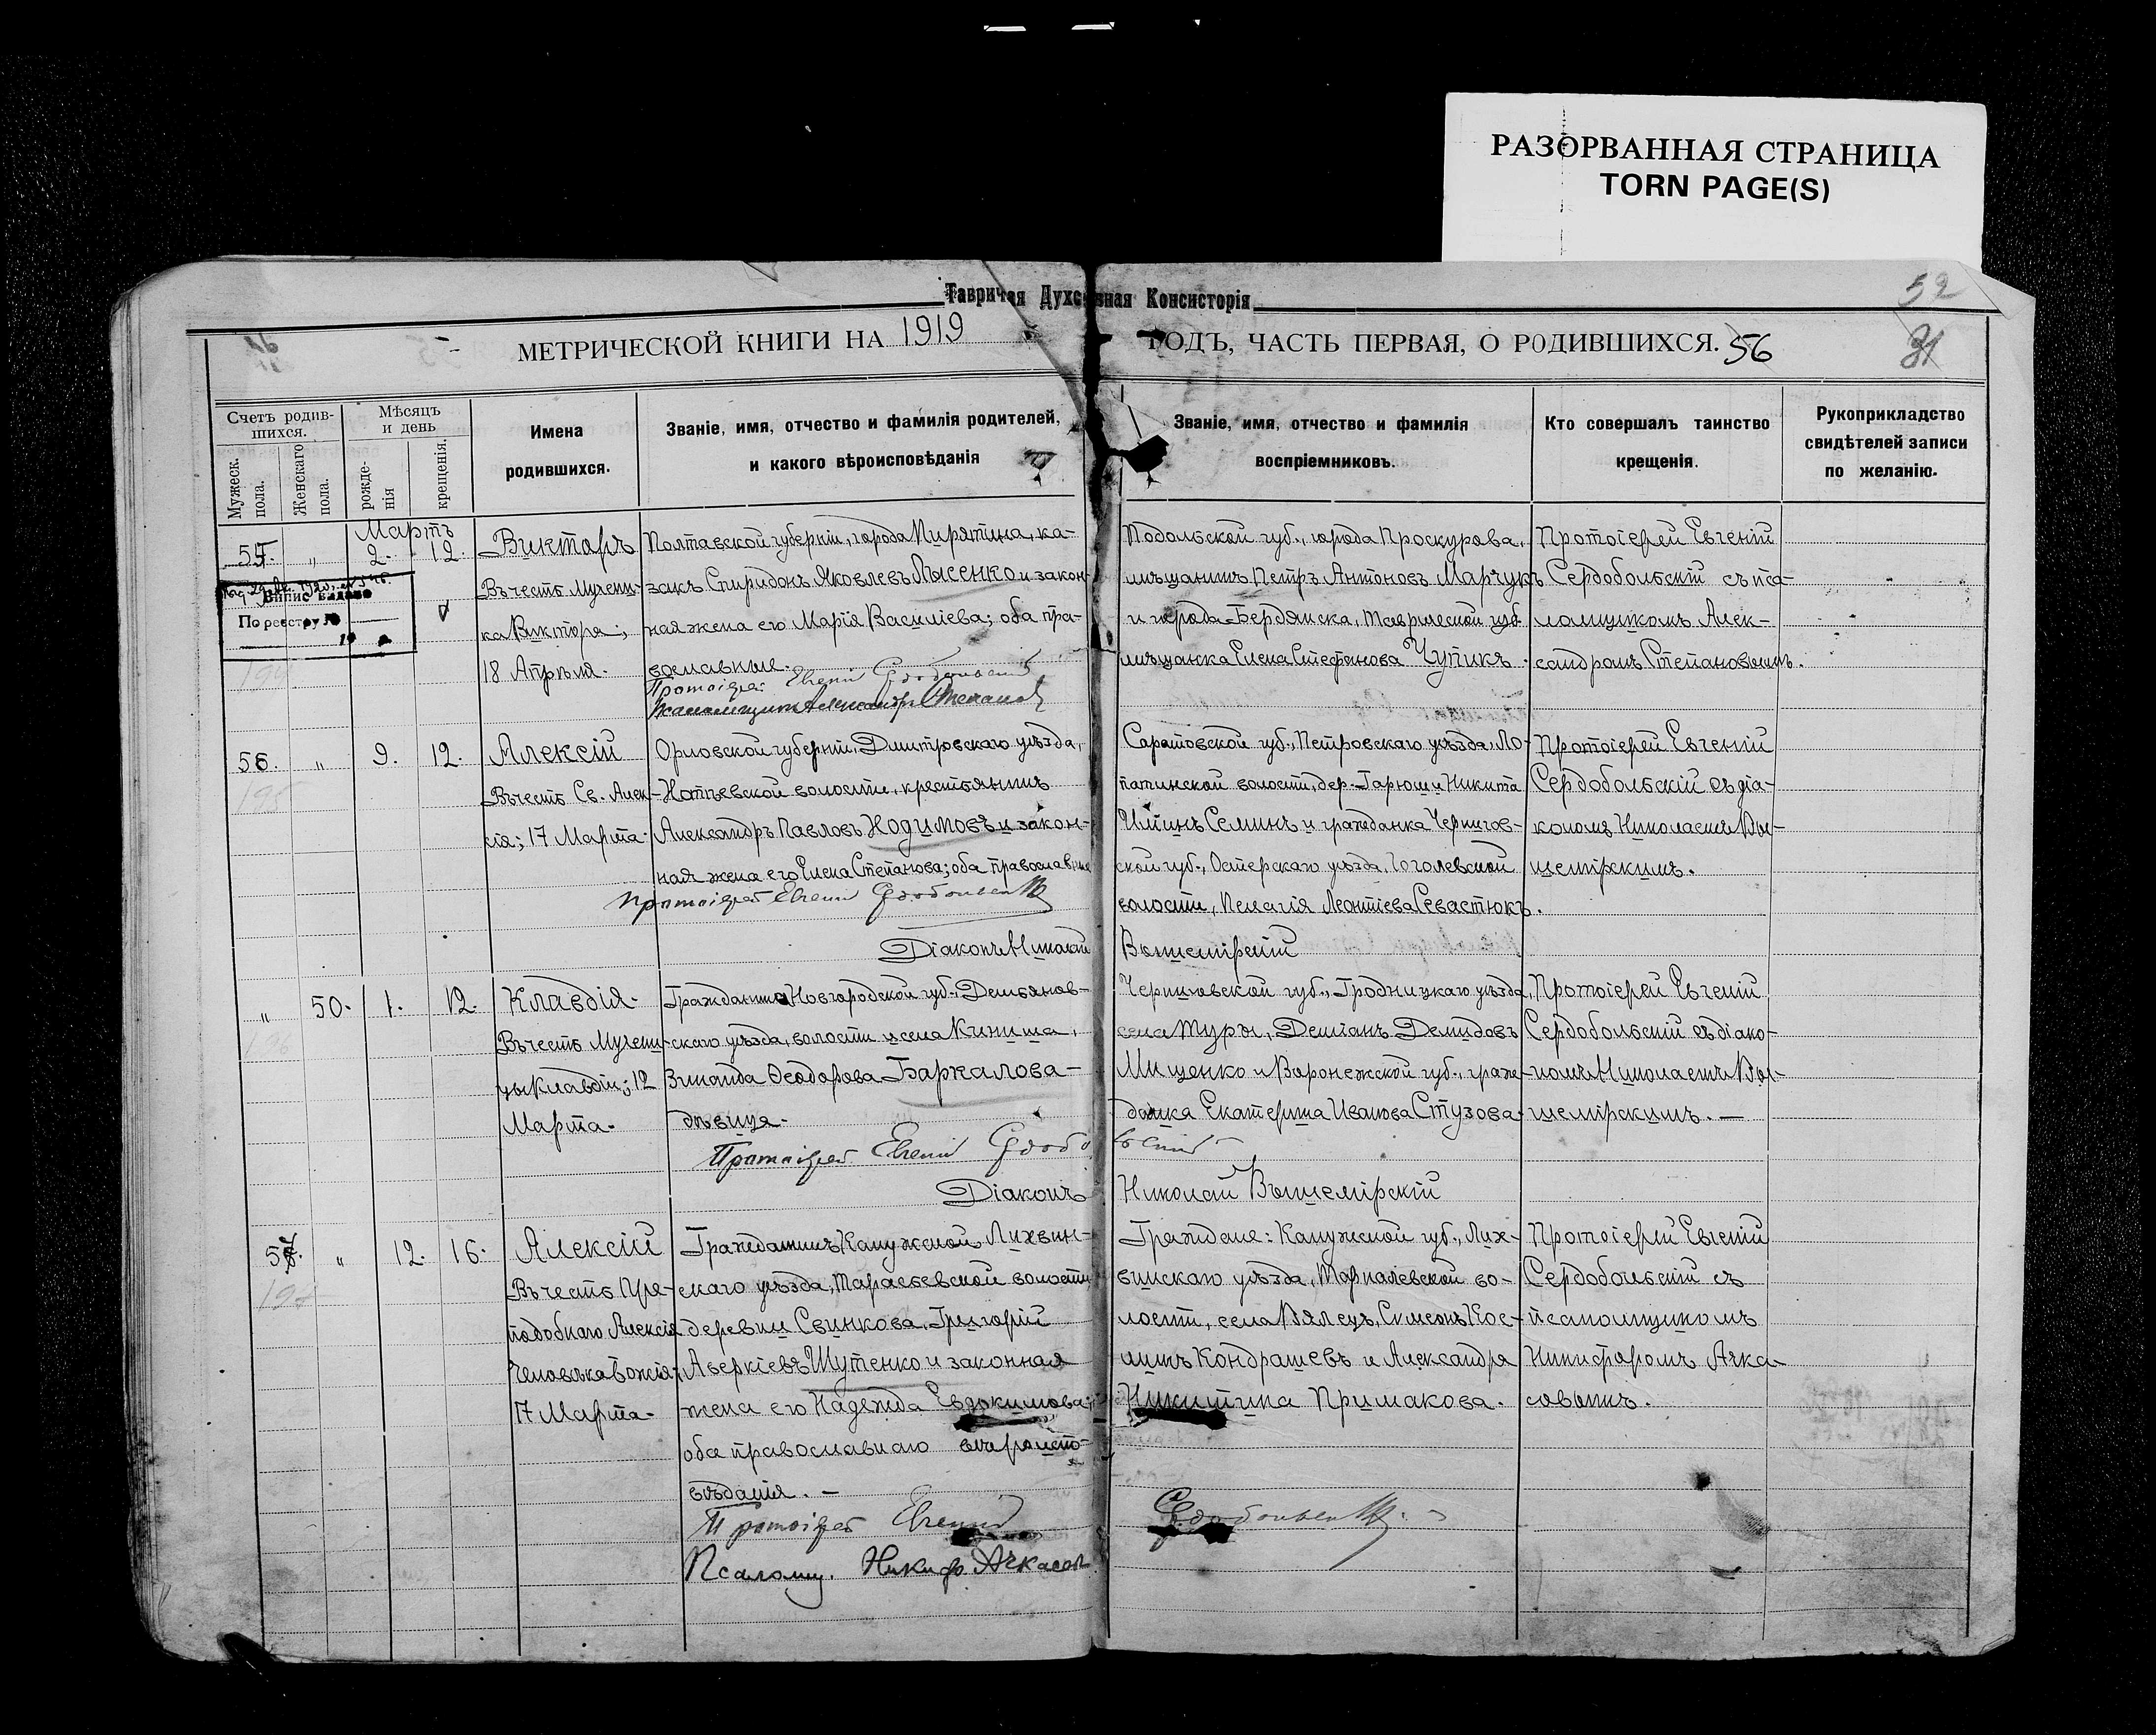 РАЗОРВАННАЯ СТРАНИЦА
TORN PAGE(S)
Тавричая Духовная Консисторія
52
МЕТРИЧЕСКОЙ КНИГИ НА 1919
ГОДЪ, ЧАСТЬ ПЕРВАЯ, О РОДИВШИХСЯ. 56
31
Счетъ родив-
шихся.
Мужеск. пола.
Женскаго пола.
Мѣсяцъ
и день
рожде-
нія
крещенія.
Имена
родившихся.
Званіе, имя, отчество и фамилія родителей,
и какого вѣроисповѣданія
Званіе, имя, отчество и фамилія
воспріемниковъ.
Кто совершалъ таинство
крещенія.
Рукоприкладство
свидѣтелей записи
по желанію.
Мартъ
55. " 2. 12.
Випис видано
По реестру №
19
Викторъ
Въ честь Мучени-
ка Виктора;
18 Апрѣля.
Полтавской губерніи, города Пирятина, ка-
закъ Спиридонъ Яковлевъ Лысенко и закон-
ная жена его Марія Василіева; оба пра-
вославные.
Протоіерей Евгеній Сердобольскій
Псаломщикъ Александръ Степановъ
Подольской губ., города Проскурова,
мѣщанинъ Петръ Антоновъ Марчукъ
и города Бердянска, Таврической губ.
мѣщанка Елена Стефанова Чупикъ.
Протоіерей Евгеній
Сердобольскій съ пса-
ломщикомъ Алек-
сандромъ Степановымъ.
56. " 9. 12.
195
Алексій
Въ честь Св. Алек-
сія; 17 Марта.
Орловской губерніи, Дмитровскаго уѣзда,
волости, крестьянинъ
Александръ Павловъ Нодимовъ и закон-
ная жена его Елена Степанова; оба православные
Протоіерей Евгеній Сердобольскій
Діаконъ Николай Вышемірскій
Саратовской губ., Петровскаго уѣзда, Ло-
патинской волости, дер. Гарюши Никита
Ильинъ Семинъ и гражданка Чернигов-
ской губ., Остерскаго уѣзда, Гоголевской
волости, Пелагія Леонтіева Севастюкъ.
Протоіерей Евгеній
Сердобольскій съ діа-
кономъ Николаемъ Вы-
шемірскимъ.
" 50. 1. 12.
196
Клавдія.
Въ честь Мучени-
цы Клавдіи; 12
Марта.
Гражданка Новгородской губ., Демьянов-
скаго уѣзда, волости и села Киниша,
Зинаида Ѳеодорова Баркалова -
дѣвица.
Протоіерей Евгеній Сердобольскій
Діаконъ Николай Вышемірскій
Черниговской губ., Гродницкаго уѣзда,
села Туры, Деміанъ Демидовъ
Мищенко и Воронежской губ., граж-
данка Екатерина Иванова Стузова.
Протоіерей Евгеній
Сердобольскій съ діако-
номъ Николаемъ Вы-
шемірскимъ. —
57. " 12. 16.
197
Алексій
Въ честь Пре-
подобнаго Алексія
Человѣка Божія;
17 Марта.
Гражданинъ Калужской, Лихвин-
скаго уѣзда, Тарасьевской волости,
деревни Свинкова, Григорій
Аверкіевъ Шутенко и законная
жена его Надежда Евдокимова;
оба православнаго вѣроиспо-
вѣданія. —
Протоіерей Евгеній Сердобольскій.
Псаломщ. Никиф. Ачкасовъ
Граждане: Калужской губ., Лих-
винскаго уѣзда, во-
лости, села Вялецъ, Симеонъ Кос-
минъ Кондрашевъ и Александра
Никитина Примакова.
Протоіерей Евгеній
Сердобольскій съ
псаломщикомъ
Никифоромъ Ачка-
совымъ.